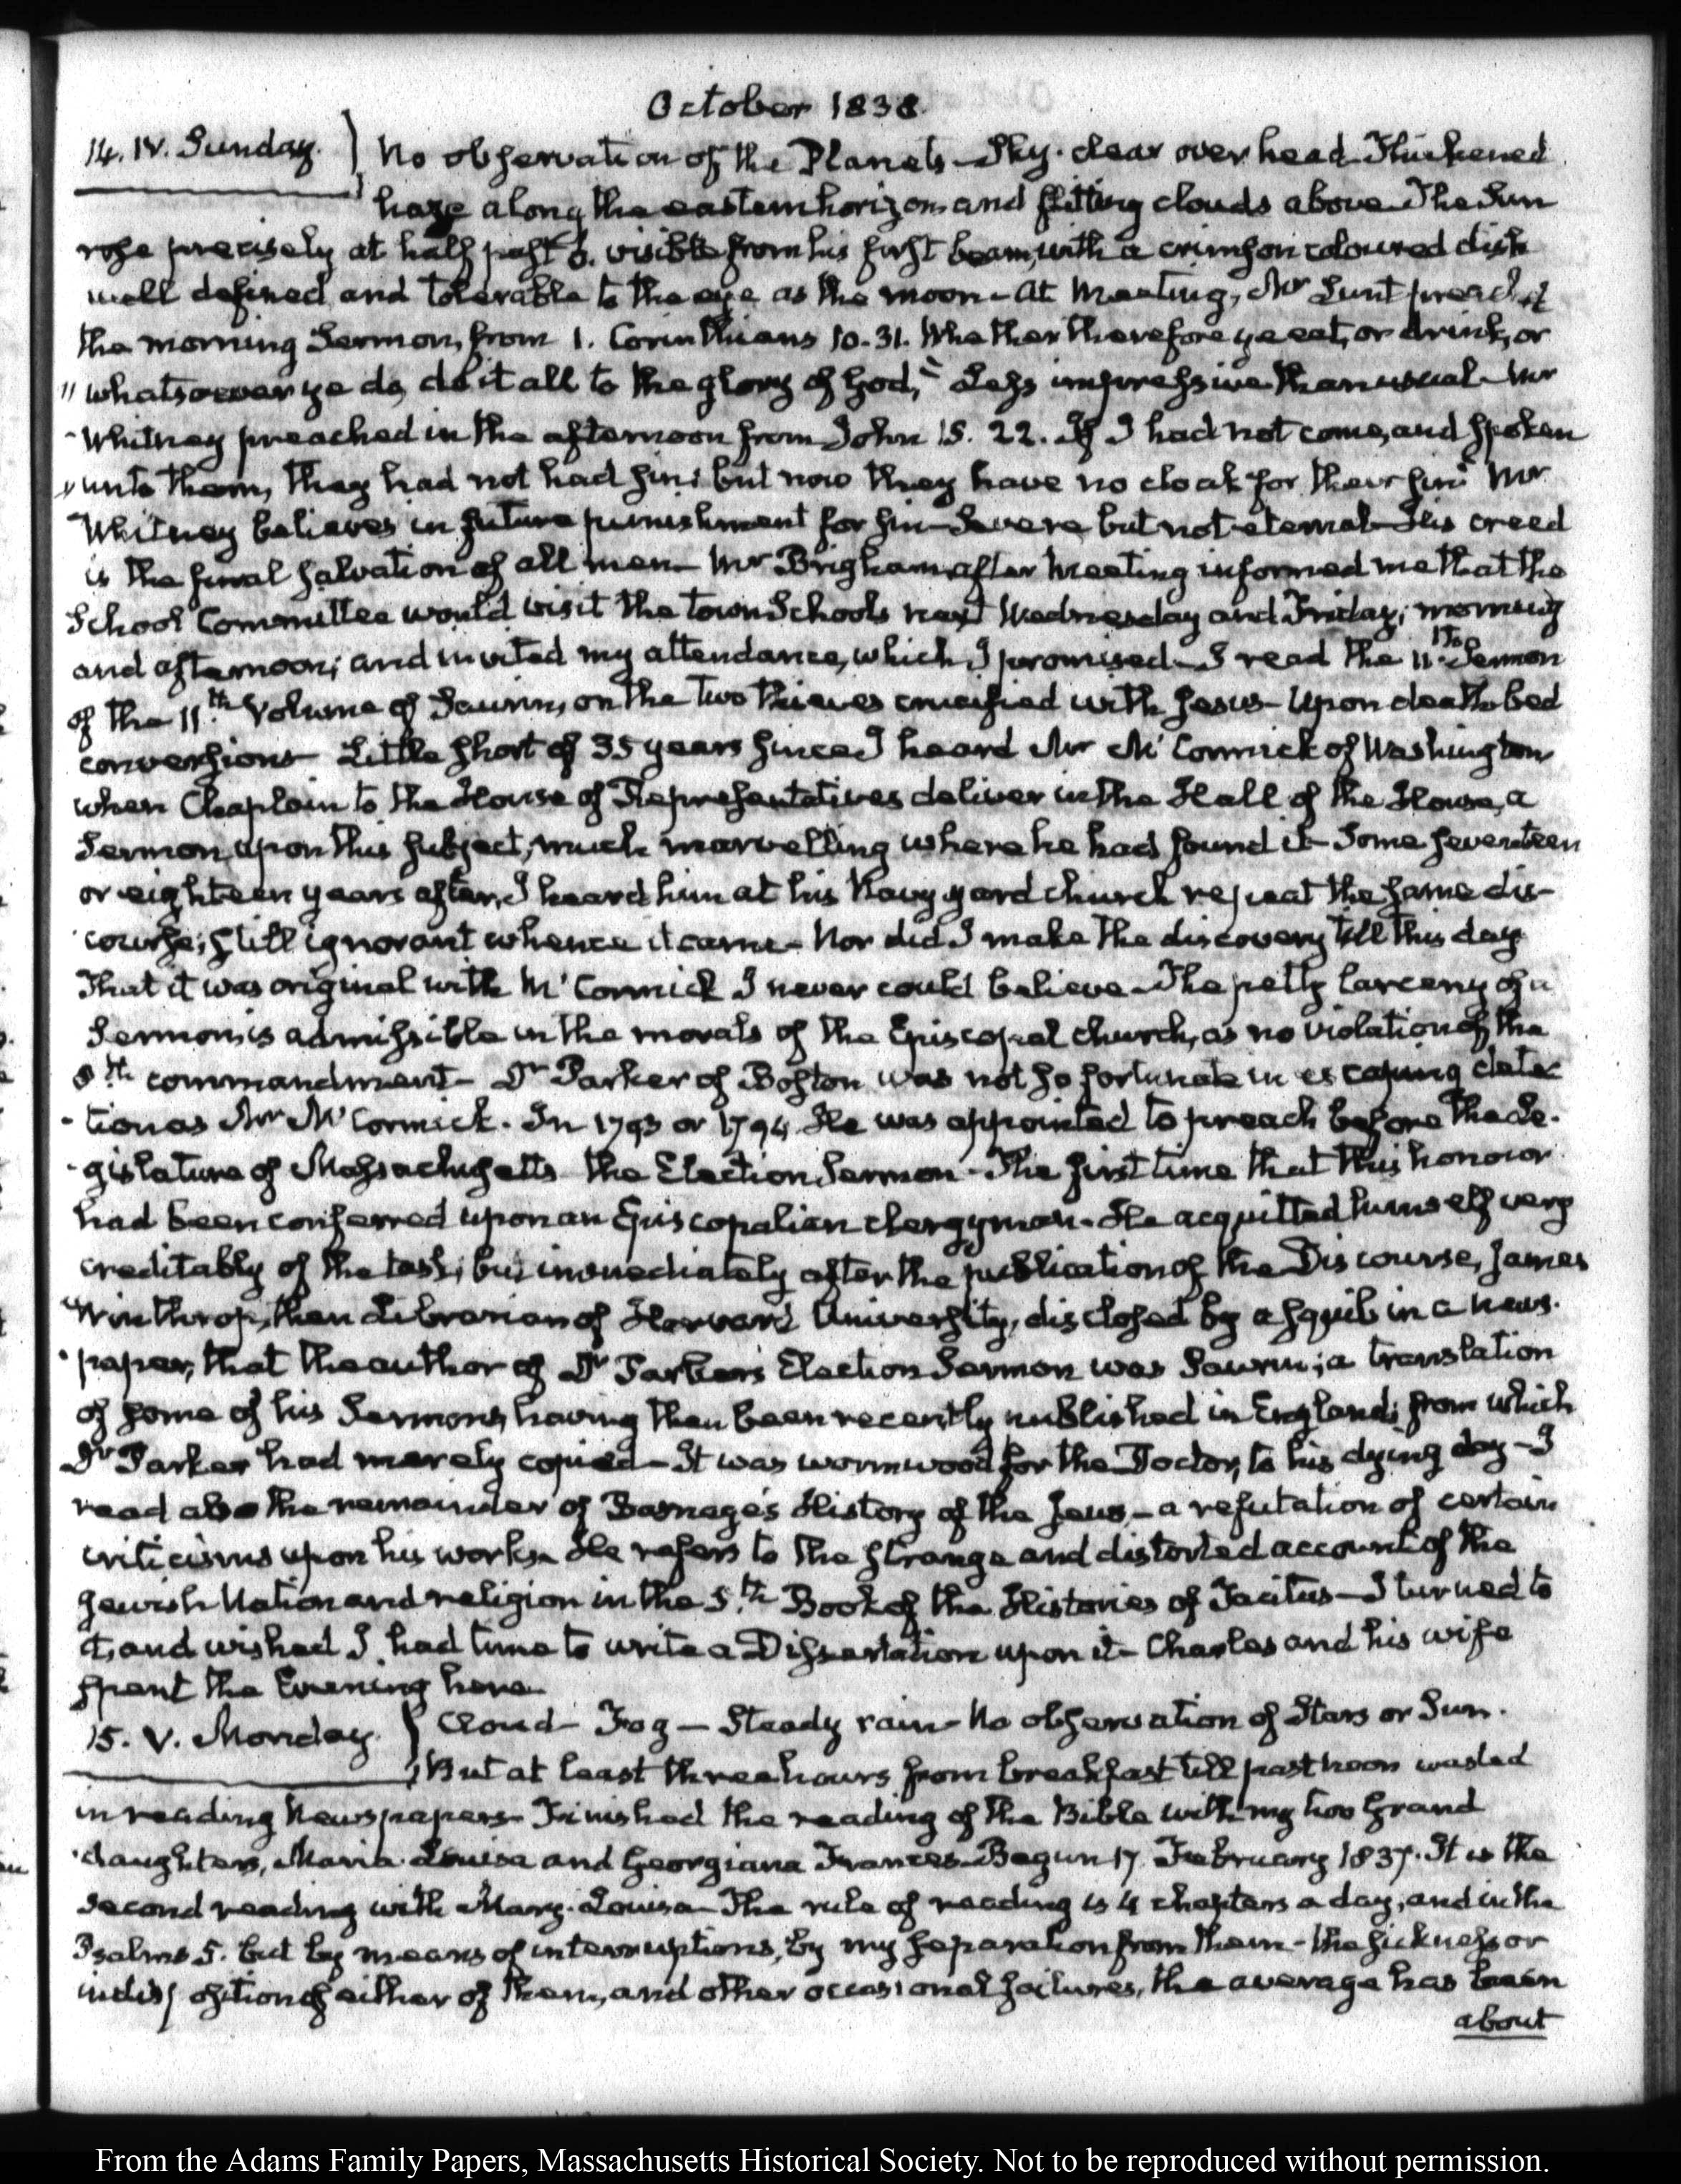 October 1838.
14. IV. Sunday. No observation of the Planets – Sky clear over head Thickened
haze along the eastern horizon and flitting clouds above The Sun
rose precisely at half past 6. visible from his first beam, with a crimson coloured disk
well defined and tolerable to the eye as the moon – At Meeting, Mr Lunt preach'd
the morning Sermon, from 1. Corinthians 10. 31. Whether therefore ye eat, or drink, or
"whatsoever ye do, do it all to the glory of God," Less impressive than usual – Mr
Whitney preached in the afternoon from John 15. 22. If I had not come, and spoken
"unto them, they had not had sin; but now they have no cloak for their sin" Mr
Whitney believes in future punishment for sin – Severe but not eternal – His creed
is the final salvation of all men – Mr Brigham after Meeting informed me that the
School Committee would visit the town Schools next Wednesday and Friday, morning
and afternoon; and invited my attendance, which I promised – I read the 11th Sermon
of the 11th Volume of Saurin, on the two thieves crucified with Jesus – Upon death bed
conversions – Little short of 35 years since I heard Mr M'Cormick of Washington
when Chaplain to the House of Representatives deliver in the Hall of the House, a
Sermon upon this subject, much marvelling where he had found it – Some seventeen
or eighteen years after, I heard him at his Navy yard church repeat the same dis-
course; still ignorant whence it came – Nor did I make the discovery till this day
That it was original with M'Cormick I never could believe – The petty larceny of a
Sermon is admissible in the morals of the Episcopal church, as no violation of the
8th commandment – Dr Parker of Boston was not so fortunate in escaping detec
-tion as Mr M'Cormick. In 1793 or 1794 He was appointed to preach before the Le-
-gislature of Massachusetts the Election Sermon – The first time that this honour
had been conferred upon an Episcopalian clergyman. He acquitted himself very
creditably of the task; but immediately after the publication of the Discourse, James
Winthrop, then Librarian of Harvard University, disclosed by a squib in a news-
-paper, that the author of Dr Parker's Election Sermon was Saurin; a translation
of some of his Sermons, having then been recently published in England; from which
Dr Parker had merely copied – It was wormwood for the Doctor, to his dying day – I
read also the remainder of Basnage's History of the Jews – a refutation of certain
criticisms upon his work. He refers to the strange and distorted account of the
Jewish Nation and religion in the 5th Book of the Histories of Tacitus – I turned to
it, and wished I had time to write a Dissertation upon it – Charles and his wife
spent the Evening here
15. V. Monday. Cloud – Fog – Steady rain – No observation of Stars or Sun.
But at least three hours from breakfast till past noon wasted
in reading Newspapers – Finished the reading of the Bible with my two Grand
daughters, Maria Louisa and Georgiana Frances – Begun 17. February 1837. It is the
second reading with Mary-Louisa – The rule of reading is 4 chapters a day, and in the
Psalms 5. but by means of interruptions, by my separation from them – the sickness or
indisposition of either of them, and other occasional failures, the average has been
about
From the Adams Family Papers, Massachusetts Historical Society. Not to be reproduced without permission.